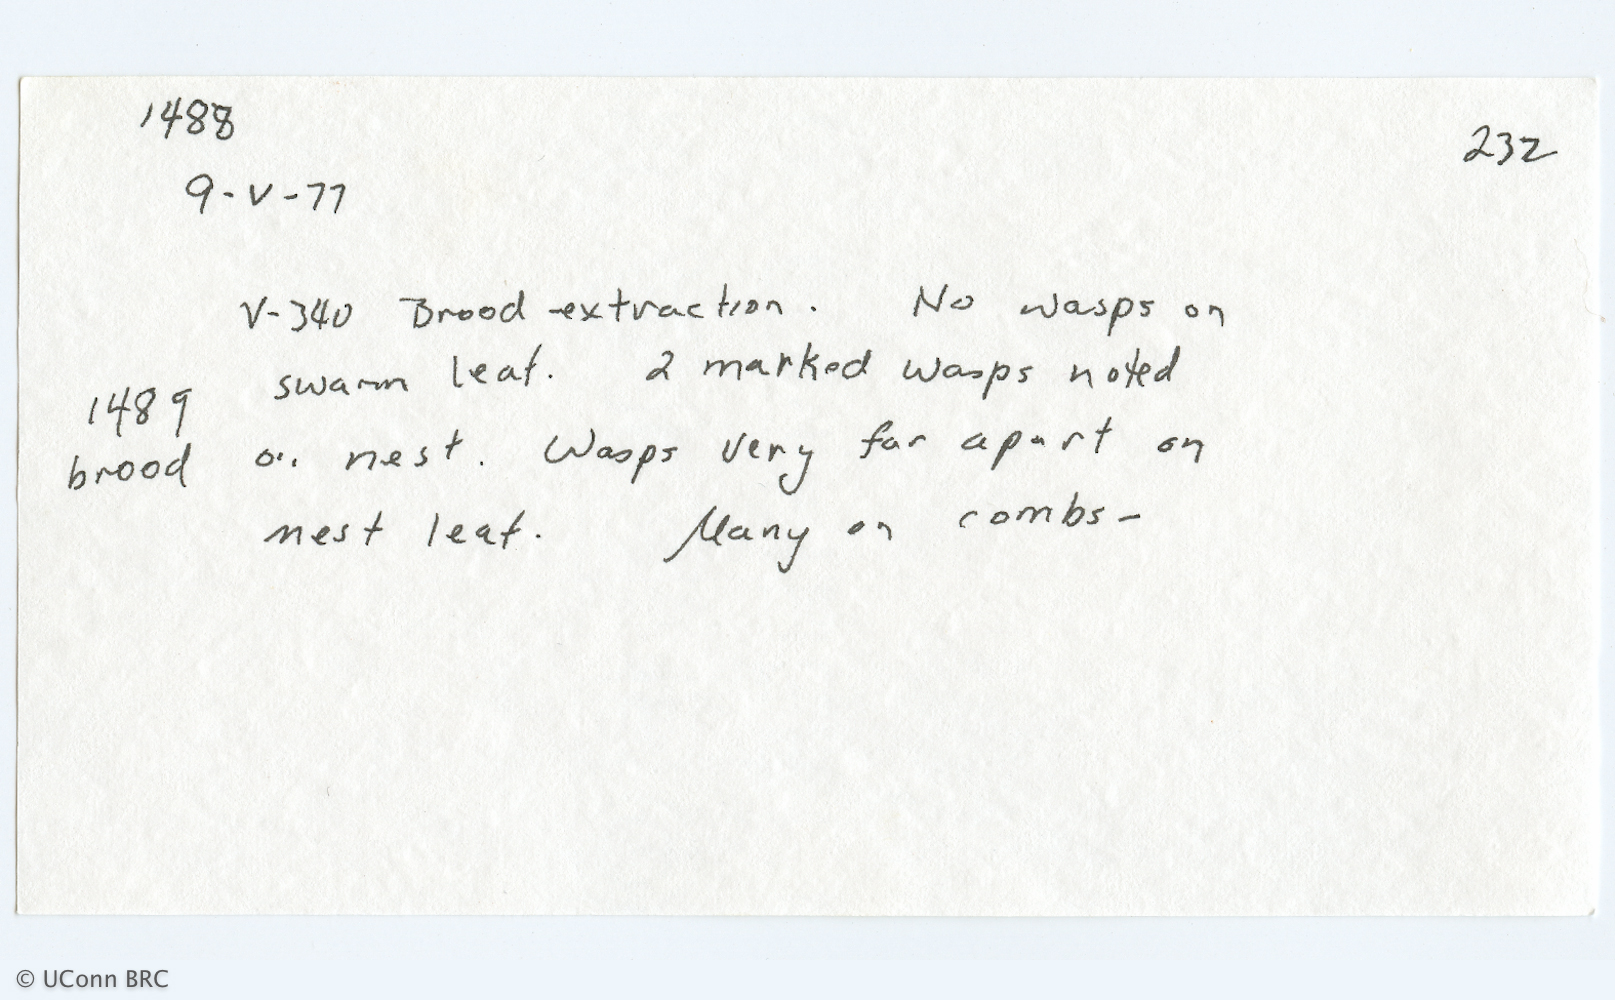 1488
232
9-V-77
V-340 Brood extraction. No wasps on
swarm leaf. 2 marked wasps noted
1489
brood on nest. Wasps very far apart on
nest leaf. Many on combs-
© UConn BRC